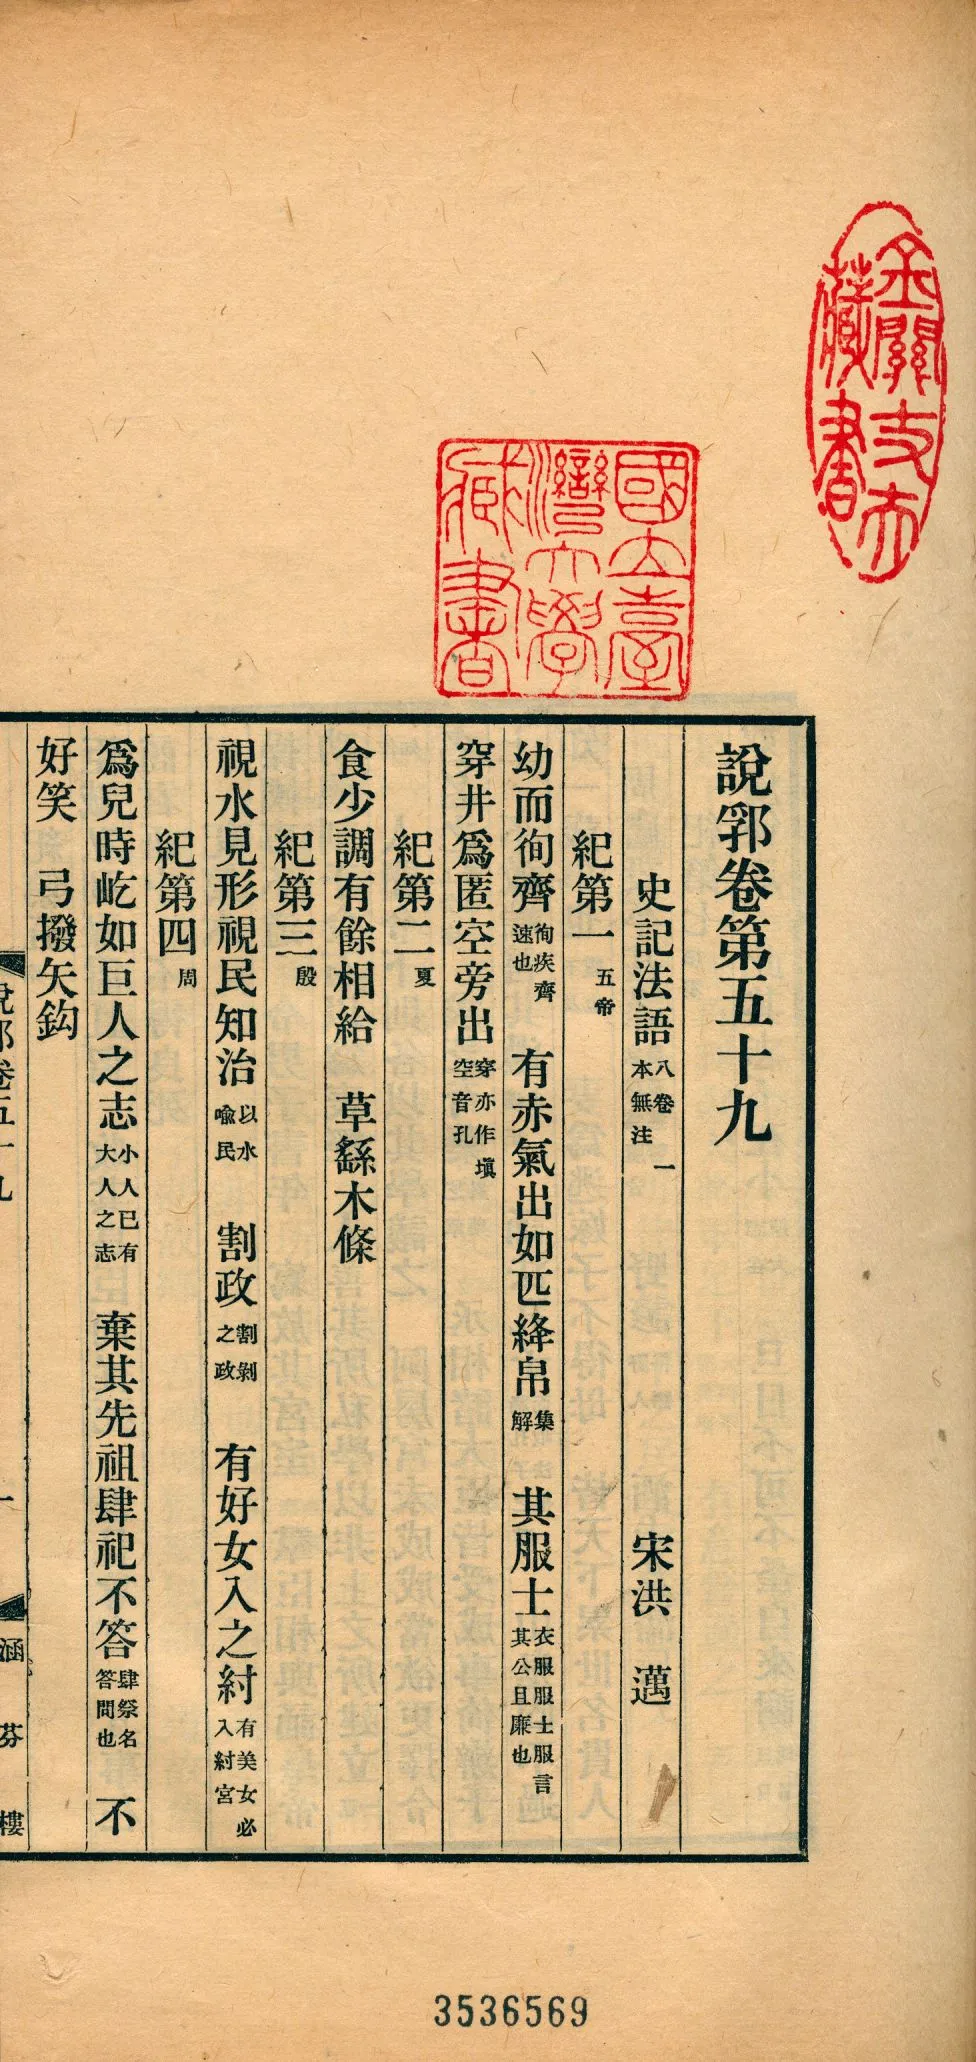 說郛卷第五十九
史記法語 八卷 一 本無注 宋洪 邁
紀第一 五帝
幼而徇齊 徇疾齊 速也 有赤氣出如匹絳帛 集 解 其服士 衣服服士服言 其公且廉也
穿井爲匿空旁出 穿亦作塡 空音孔
紀第二 夏
食少調有餘相給 草繇木條
紀第三 殷
視水見形視民知治 以水 喩民 割政 割剝 之政 有好女入之紂 有美女必 入紂宮
紀第四 周
爲兒時屹如巨人之志 小人已有 大人之志 棄其先祖肆祀不答 肆祭名 答問也 不
好笑 弓撥矢鈎
說郛卷五十九
一
涵芬樓
國立臺
灣大學
藏書
藏書
3536569